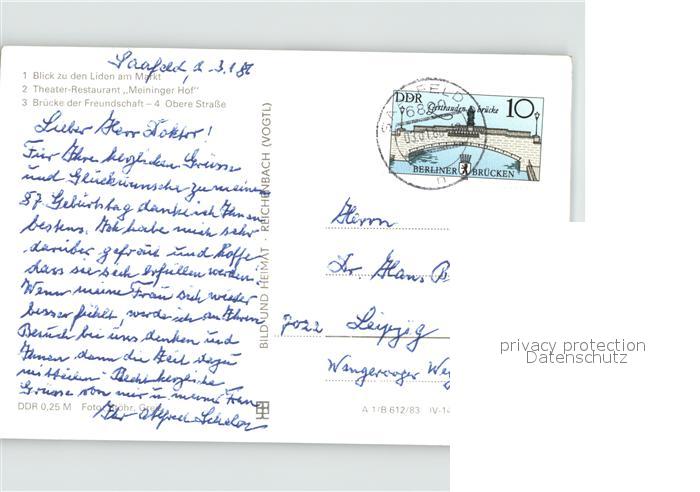 Saalfeld, d. 3.1.86
1 Blick zu den Liden am Markt
2 Theater-Restaurant „Meininger Hof"
3 Brücke der Freundschaft – 4 Obere Straße
Lieber Herr Doktor!
Für Ihre herzlichen Grüsse
und Glückwünsche zu meinem
87. Geburtstag danke ich Ihnen
bestens. Ich habe mich sehr
darüber gefreut und hoffe
dass sie sich erfüllen werden.
Wenn meine Frau sich wieder
besser fühlt, werde ich an Ihren
Besuch bei uns denken und
Ihnen dann die Zeit dazu
mitteilen. Recht herzliche
Grüsse von mir u. meiner Frau
Ihr Alfred
DDR 0,25 M Foto:
BILD UND HEIMAT · REICHENBACH (VOGTL)
SAALFELD
6800
DDR
Gertraudenbrücke
10
BERLINER BRÜCKEN
Herrn
Dr. Hans B
7022 Leipzig
Wangerooger We
A 1/B 612/83 IV-14
privacy protection
Datenschutz